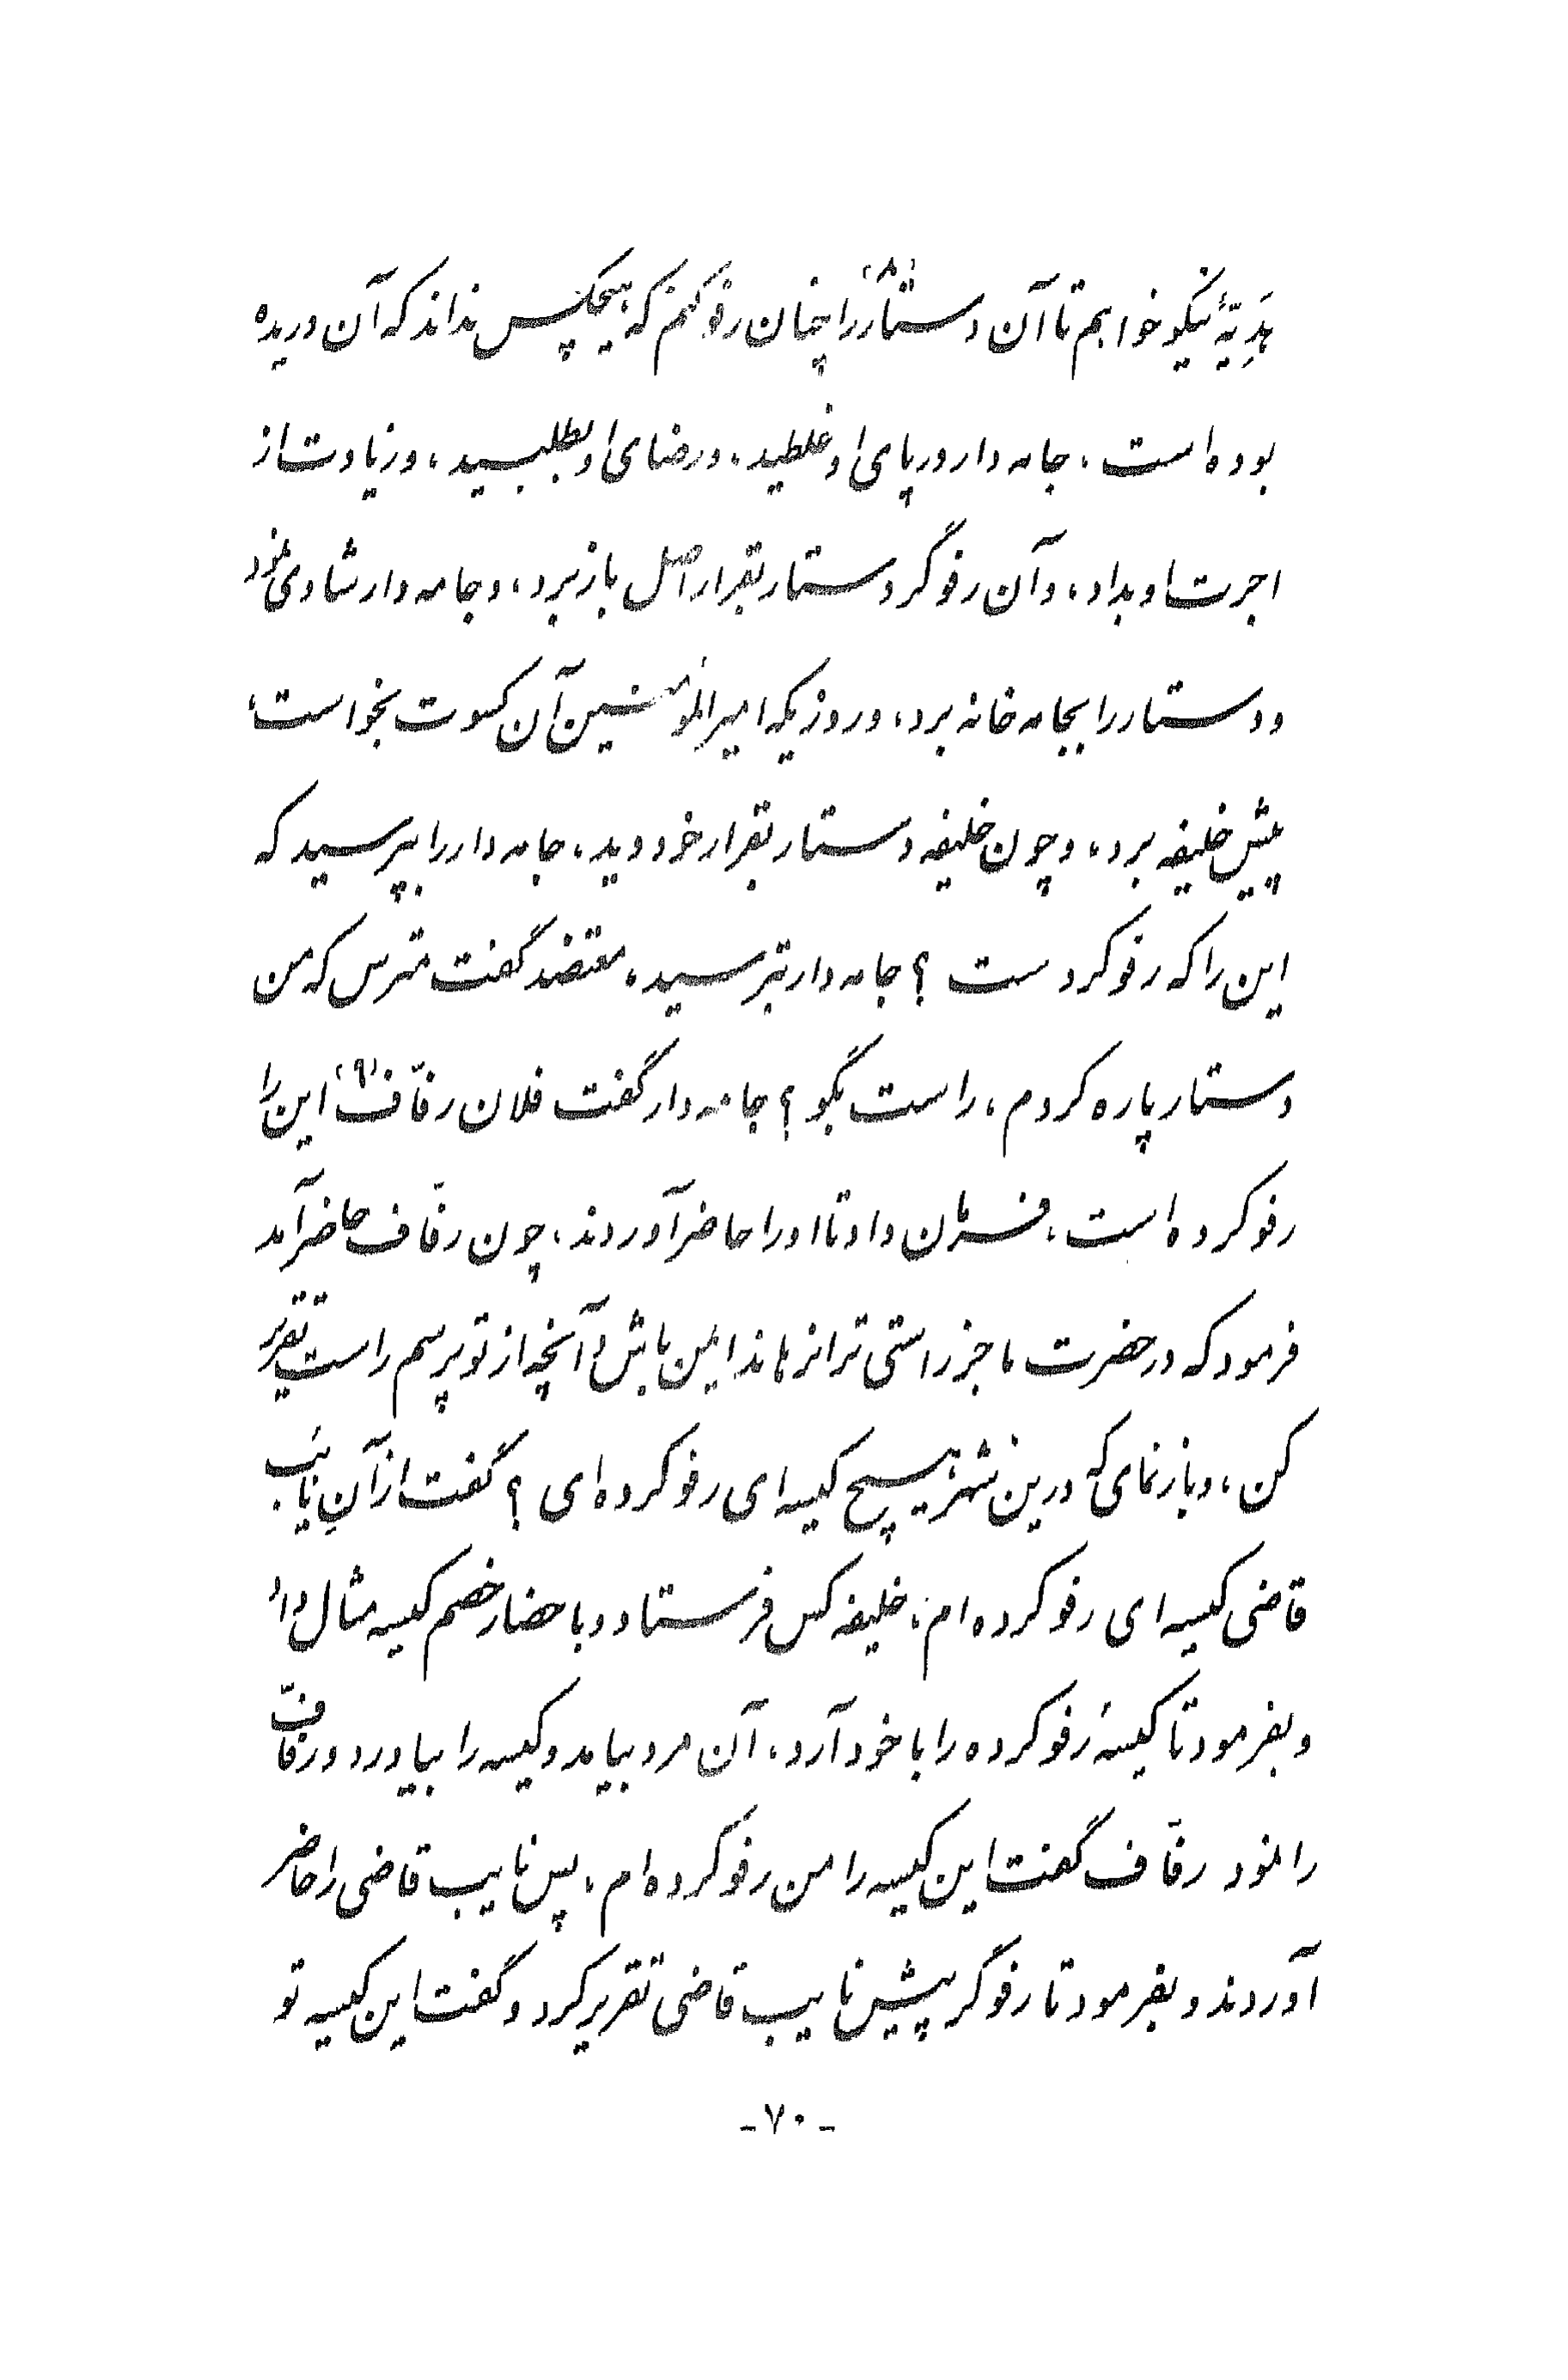 هَدِیّهٔ نیکو خواهم تا آن دستار(۸) را چنان رفو کنم که هیچکس نداند که آن دریده
بوده است، جامه دار در پای او غلطید، و رضای او بطلبید، و زیادت از
اجرت او بداد، و آن رفوگر دستار بقرار اصل باز برد، و جامه دار شادی نمود
و دستار را بجامه خانه برد، و روزیکه امیرالمؤمنین آن کسوت بخواست،
پیش خلیفه برد، و چون خلیفه دستار بقرار خود دید، جامه دار را بپرسید که
این را که رفو کردست ؟ جامه دار بترسید، معتضد گفت مترس که من
دستار پاره کردم، راست بگو ؟ جامه دار گفت فلان رفّاف(۹) این را
رفو کرده است، فرمان داد تا او را حاضر آوردند، چون رفّاف حاضر آمد
فرمود که در حضرت ما جز راستی ترا نرهاند ایمن باش و آنچه از تو پرسم راست تقریر
کن، و باز نمای که درین شهر هیچ کیسه ای رفو کرده ای ؟ گفت از آنِ نایب
قاضی کیسه ای رفو کرده ام، خلیفه کس فرستاد و باحضار خصم کیسه مثال داد
و بفرمود تا کیسهٔ رفو کرده را با خود آرد، آن مرد بیامد و کیسه را بیاورد و رفّاف
را نمود رفّاف گفت این کیسه را من رفو کرده ام، پس نایب قاضی را حاضر
آوردند و بفرمود تا رفوگر پیش نایب قاضی تقریر کرد و گفت این کیسه تو
-۷۰-